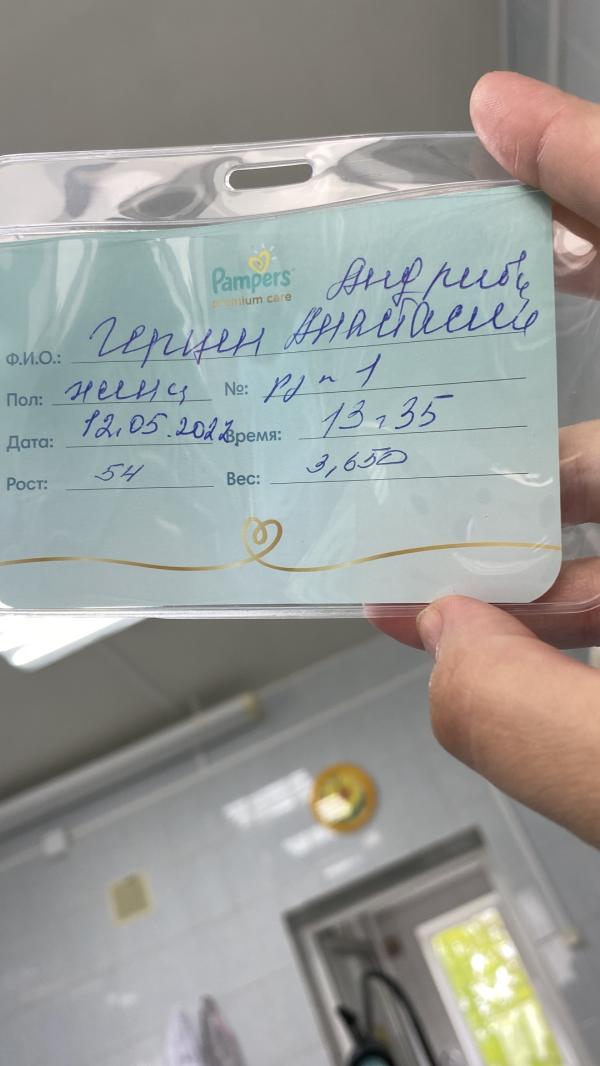 Pampers
premium care
Ф.И.О.: Герцен Анастасия
Пол: женц №: р/п 1
Дата: 12.05.2022 Время: 13:35
Рост: 54 Вес: 3,650